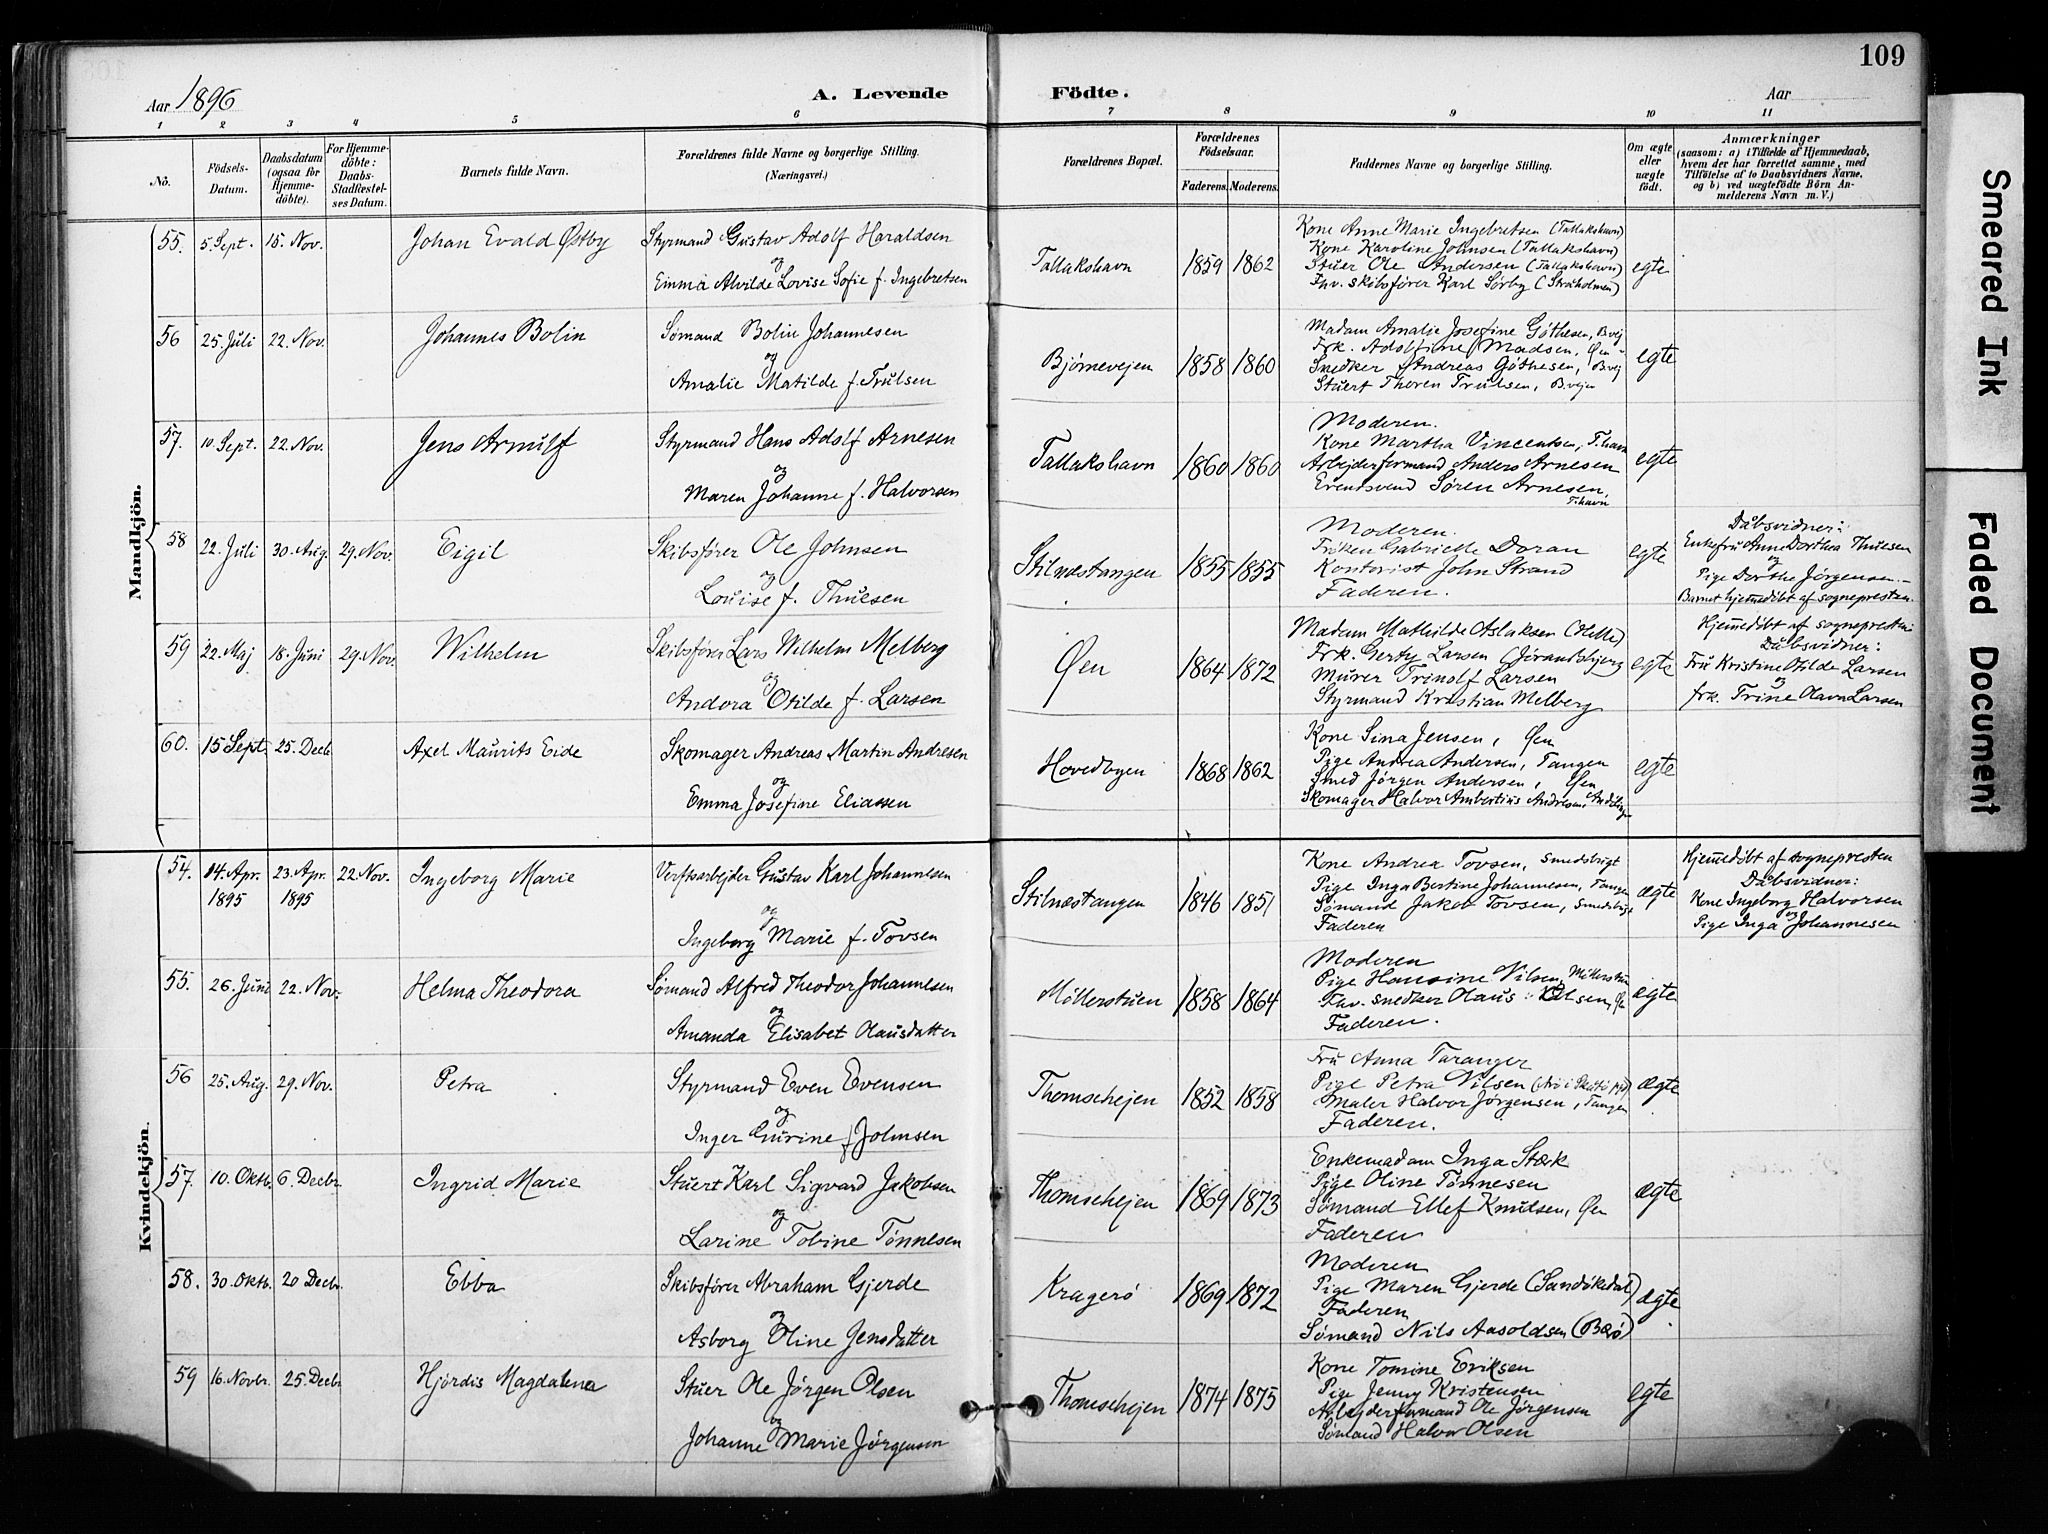 109
Aar 1896
A. Levende Födte.
Aar
1 2 3 4 5 6 7 8 9 10 11
No.
Födsels-Datum.
Daabsdatum (ogsaa för Hjemmedöbte).
For Hjemmedöbte: Daabs-Stadfæstelses Datum.
Barnets fulde Navn.
Forældrenes fulde Navne og borgerlige Stilling.
(Næringsvei.)
Forældrenes Bopæl.
Forældrenes Födselsaar.
Faderens. Moderens.
Faddernes Navne og borgerlige Stilling.
Om ægte eller uægte födt.
Anmærkninger
(saasom: a) i Tilfælde af Hjemmedaab, hvem der har forrettet samme, med Tilföielse af to Daabsvidners Navne, og b) ved uægtefödte Börn Anmelderens Navn m. V.)
Mandkjön.
55. 5. Sept. 15. Nov. Johan Evald Østby
Styrmand Gustav Adolf Haraldsen
og
Emma Alvilde Lovise Sofie f. Ingebretsen
Tallakshavn 1859 1862
Kone Anne Marie Ingebretsen (Tallakshavn)
Kone Karoline Johnsen (Tallakshavn)
Stuer Ole Andersen (Tallakshavn)
Fhv. skibsfører Karl Sørby (Struholmen)
egte
56 25. Juli 22. Nov. Johannes Bolin
Sømand Bolin Johannesen
og
Amalie Matilde f. Trulsen
Bjørnevejen 1858 1860
Madam Amalie Josefine Gøthesen, Bvej
Frk. Adolfine Madsen, Øen
Snedker Andreas Gøthesen, Bvej
Stuert Thoren Trulsen, Bvejen
egte
57. 10. Sept. 22. Nov. Jens Arnulf
Styrmand Hans Adolf Arnesen
og
Maren Johanne f. Halvorsen
Tallakshavn 1860 1860
Moderen.
Kone Martha Vincentsen, T.havn
Arbejderformand Anders Arnesen
Svend Søren Arnesen,
T.havn
egte
58 22. Juli 30. Aug. 29. Nov. Eigil
Skibsfører Ole Johnsen
og
Louise f. Thuesen
Stilnæstangen 1855 1855
Moderen.
Frøken Gabrielle Doran
Kontorist John Strand
Faderen.
egte
Dåbsvidner:
Enkefru Anne Dorthea Thuesen
og
Pige Dorthe Jørgensen.
Barnet hjemmedøbt af sognepresten.
59 22. Maj 18. Juni 29. Nov. Wilhelm
Skibsfører Lars Wilhelm Melberg
og
Andora Otilde f. Larsen
Øen 1864 1872
Madam Mathilde Aslaksen (Helle)
Frk. Gerty Larsen (Jørandsbjerg
Murer Trinolf Larsen
Styrmand Kristian Melberg
egte
Hjemmedøbt af sognepresten
Dåbsvidner:
Fru Kristine Otilde Larsen
og
frk. Trine Olava Larsen
60. 15 Sept 25. Decb Axel Maurits Eide
Skomager Andreas Martin Andresen
og
Emma Josefine Eliassen
Hovedbyen 1868 1862
Kone Sina Jensen, Øen
Pige Andrea Andersen, Tangen
Smed Jørgen Andersen, Øen
Skomager Halvor Ambertius Andresen
egte
Kvindekjön.
54. 14. Apr. 1895 23. Apr. 1895 22. Nov. Ingeborg Marie
Verftsarbejder Gustav Karl Johannesen
og
Ingeborg Marie f. Tovsen
Stilnæstangen 1846 1851
Kone Andrea Tovsen, Smedsbugt
Pige Inga Bertine Johannesen, Tangen
Sømand Jakob Tovsen, Smedsbugt
Faderen
ægte
Hjemmedøbt af sognepresten
Dåbsvidner:
Kone Ingeborg Halvorsen
og
Pige Inga Johannesen
55. 26. Juni 22. Nov. Helma Theodora
Sømand Alfred Theodor Johannesen
og
Amanda Elisabet Olausdatter
Møllerstuen 1858 1864
Moderen
Pige Hansine Nilsen, Møllerstuen
Fhv. snedker Olaus Nilsen, Øen
Faderen.
ægte
56 25. Aug. 29. Nov. Petra
Styrmand Even Evensen
og
Inger Gurine f. Johnsen
Thomschejen 1852 1858
Fru Anna Taranger
Pige Petra Nilsen
Maler Halvor Jørgensen, Tangen
Faderen.
ægte
57. 10. Oktb. 6. Decbr Ingrid Marie
Stuert Karl Sigvard Jakobsen
og
Larine Tobine Tønnesen
Thomschejen 1869 1873
Enkemadam Inga Stærk
Pige Oline Tønnesen
Sømand Ellef Knudsen, Øen
Faderen
ægte
58. 30. Oktb. 20 Decbr. Ebba
Skibsfører Abraham Gjerde
og
Asborg Oline Jensdatter
Kragerø 1869 1872
Moderen
Pige Maren Gjerde (Sandøkedal)
Faderen
Sømand Nils Aasoldsen (Bærø)
ægte
59 16. Novbr. 25. Decbr Hjørdis Magdalena
Stuer Ole Jørgen Olsen
og
Johanne Marie Jørgensen
Thomschejen 1874 1875
Kone Tomine Eriksen
Pige Jenny Kristensen
Arbejderformand Ole Jørgensen
Sømand Halvor Olsen
egte
Smeared Ink
Faded Document